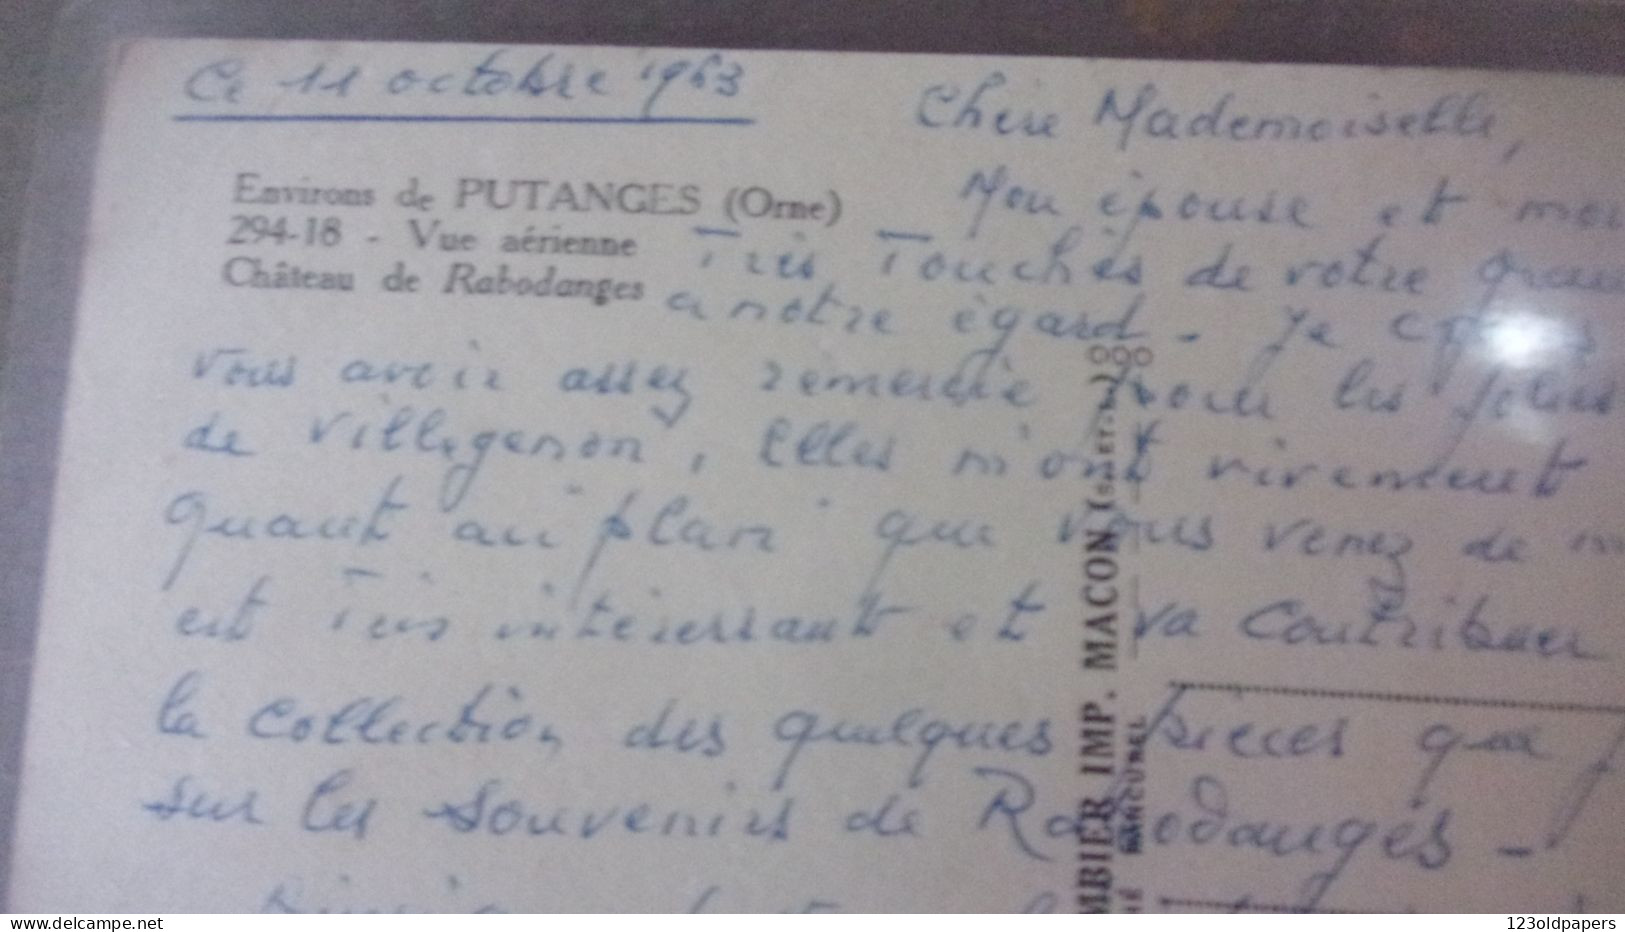 Ce 11 octobre 1963
Chère Mademoiselle,
Environs de PUTANGES (Orne)
294-18 - Vue aérienne
Château de Rabodanges
Mon épouse et moi
Très Touchés de votre
a notre égard - Je
vous avoir assez remercié pour les jolies
de Villegenon, Elles m'ont vivement
quant au "plan" que vous venez de
est Très intéressant et va contribuer
la collection des quelques pièces que
sur les souvenirs de Rabodanges -
COMBIER IMP. MACON
delcampe.net
123oldpapers